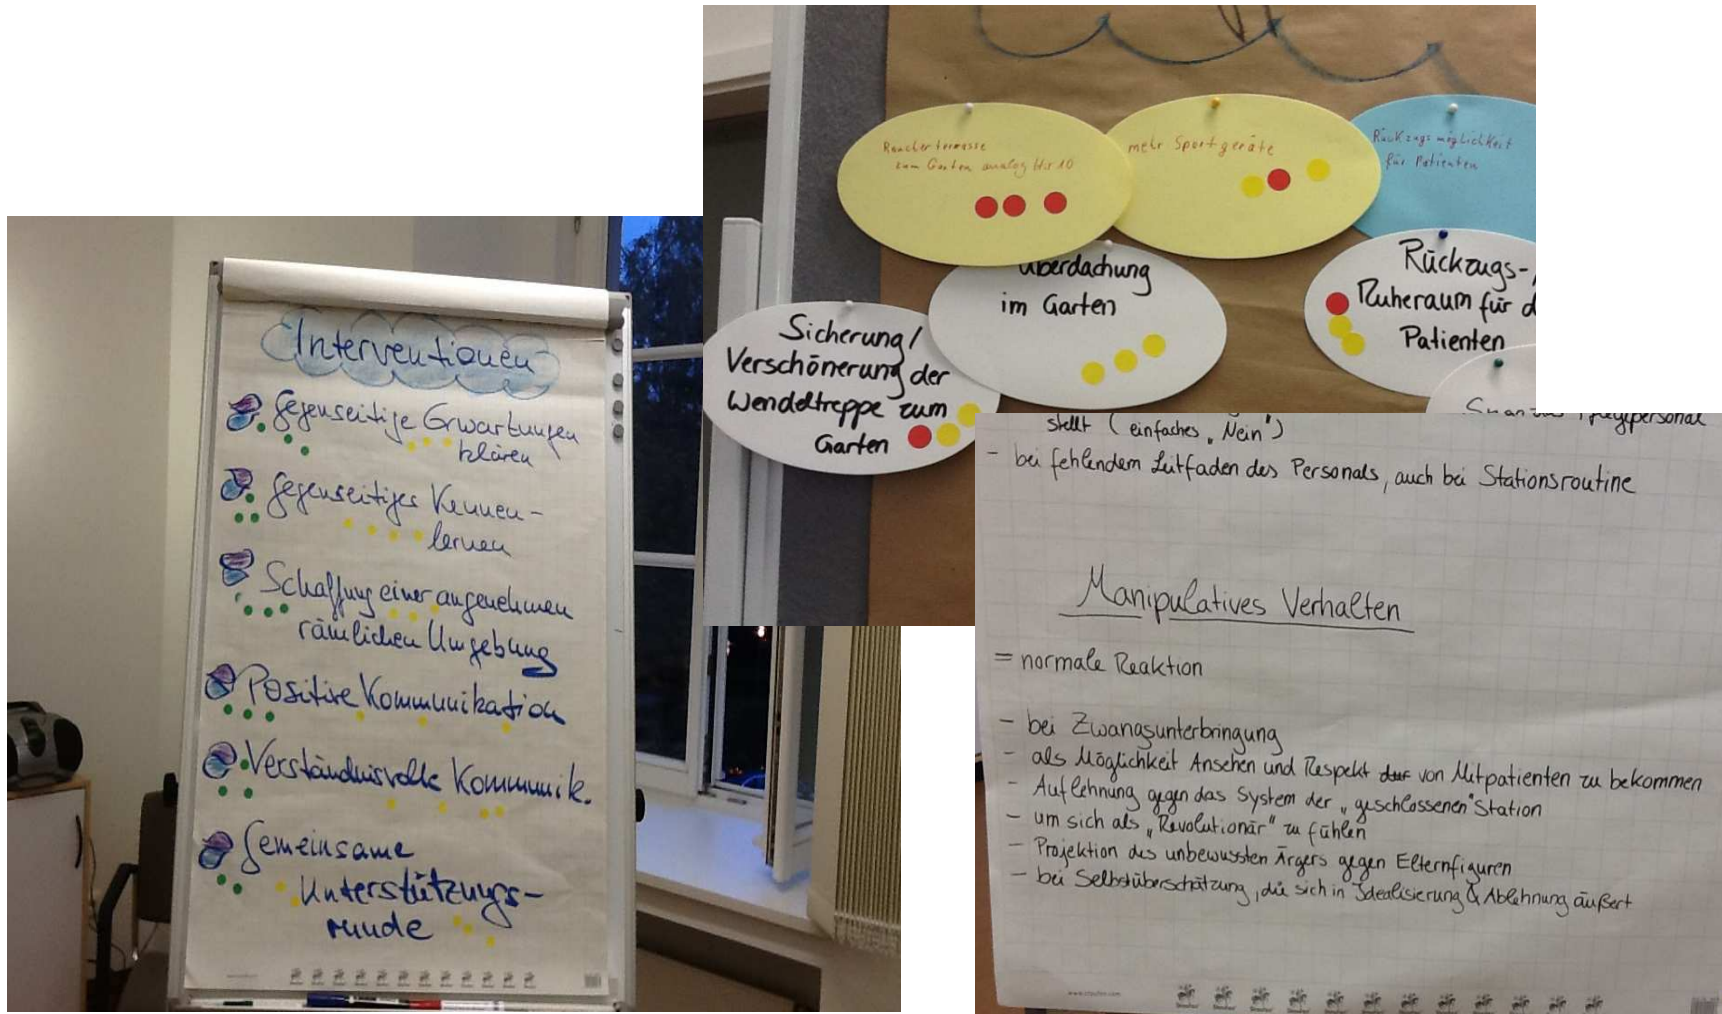 Interventionen
Gegenseitige Erwartungen
klären
Gegenseitiges Kennen-
lernen
Schaffung einer angenehmen
räumlichen Umgebung
Positive Kommunikation
Verständnisvolle Kommunik.
Gemeinsame
Unterstützungs-
runde
Raucherterrasse
zum Garten analog
mehr Sportgeräte
Rückzugsmöglichkeit
für Patienten
Überdachung
im Garten
Rückzugs-/
Ruheraum für d
Patienten
Sicherung/
Verschönerung der
Wendeltreppe zum
Garten
stellt (einfaches „Nein")
- bei fehlendem Leitfaden des Personals, auch bei Stationsroutine
Manipulatives Verhalten
= normale Reaktion
- bei Zwangsunterbringung
- als Möglichkeit Ansehen und Respekt von Mitpatienten zu bekommen
- Auflehnung gegen das System der „geschlossenen" Station
- um sich als „Revolutionär" zu fühlen
- Projektion des unbewussten Ärgers gegen Elternfiguren
- bei Selbstüberschätzung, die sich in Idealisierung & Ablehnung äußert